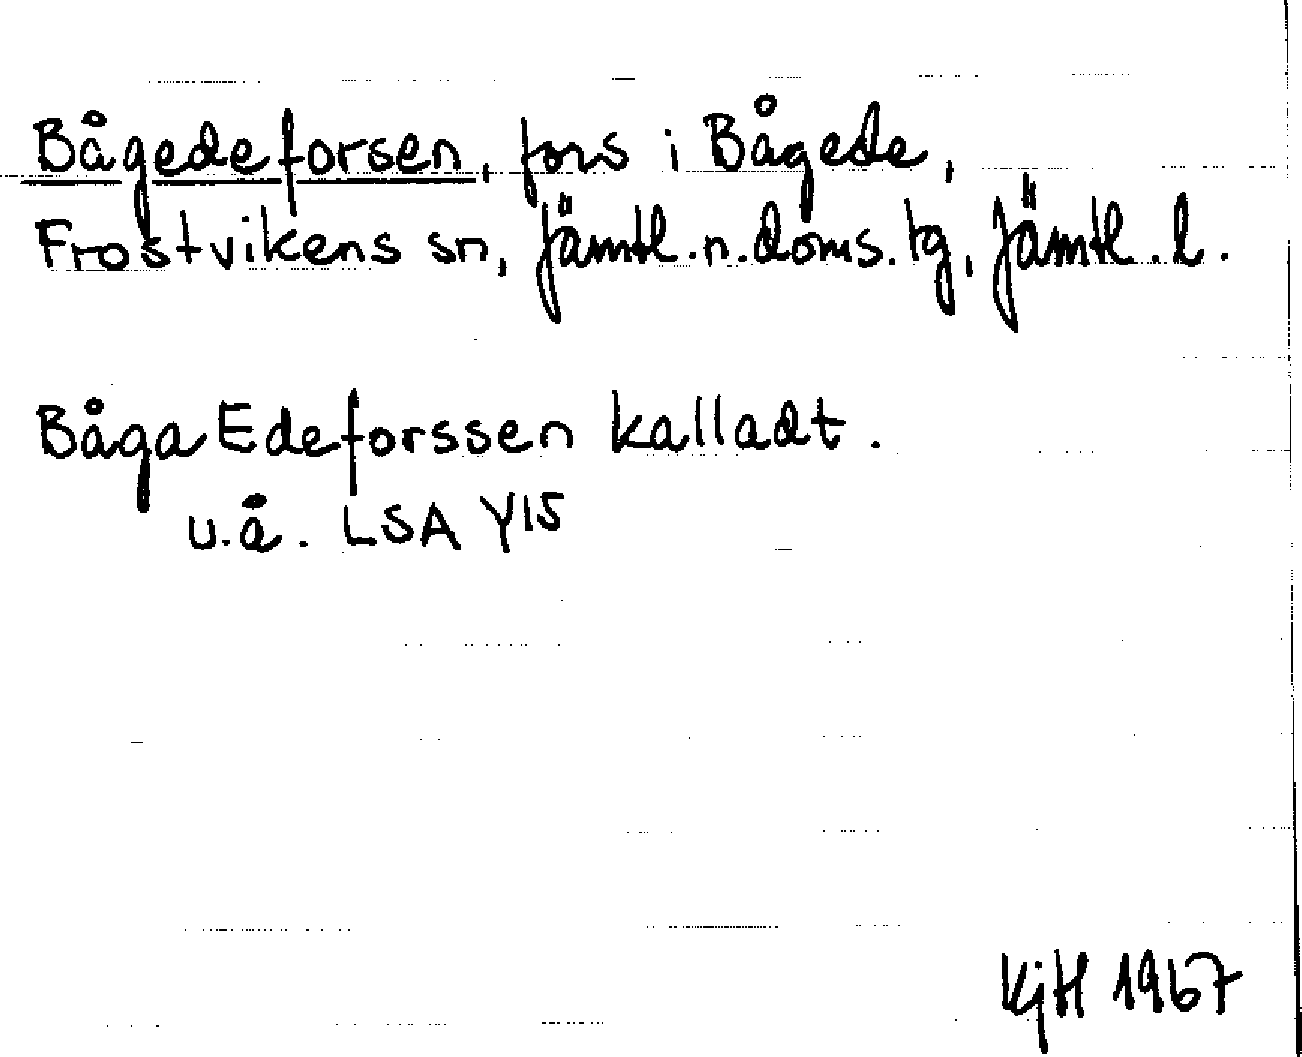 Bågedeforsen, fors i Bågede,
Frostvikens sn, Jämtl.n.doms.tg, Jämtl.l.
Båga Edeforssen kalladt.
u.å. LSA Y15
KjH 1967